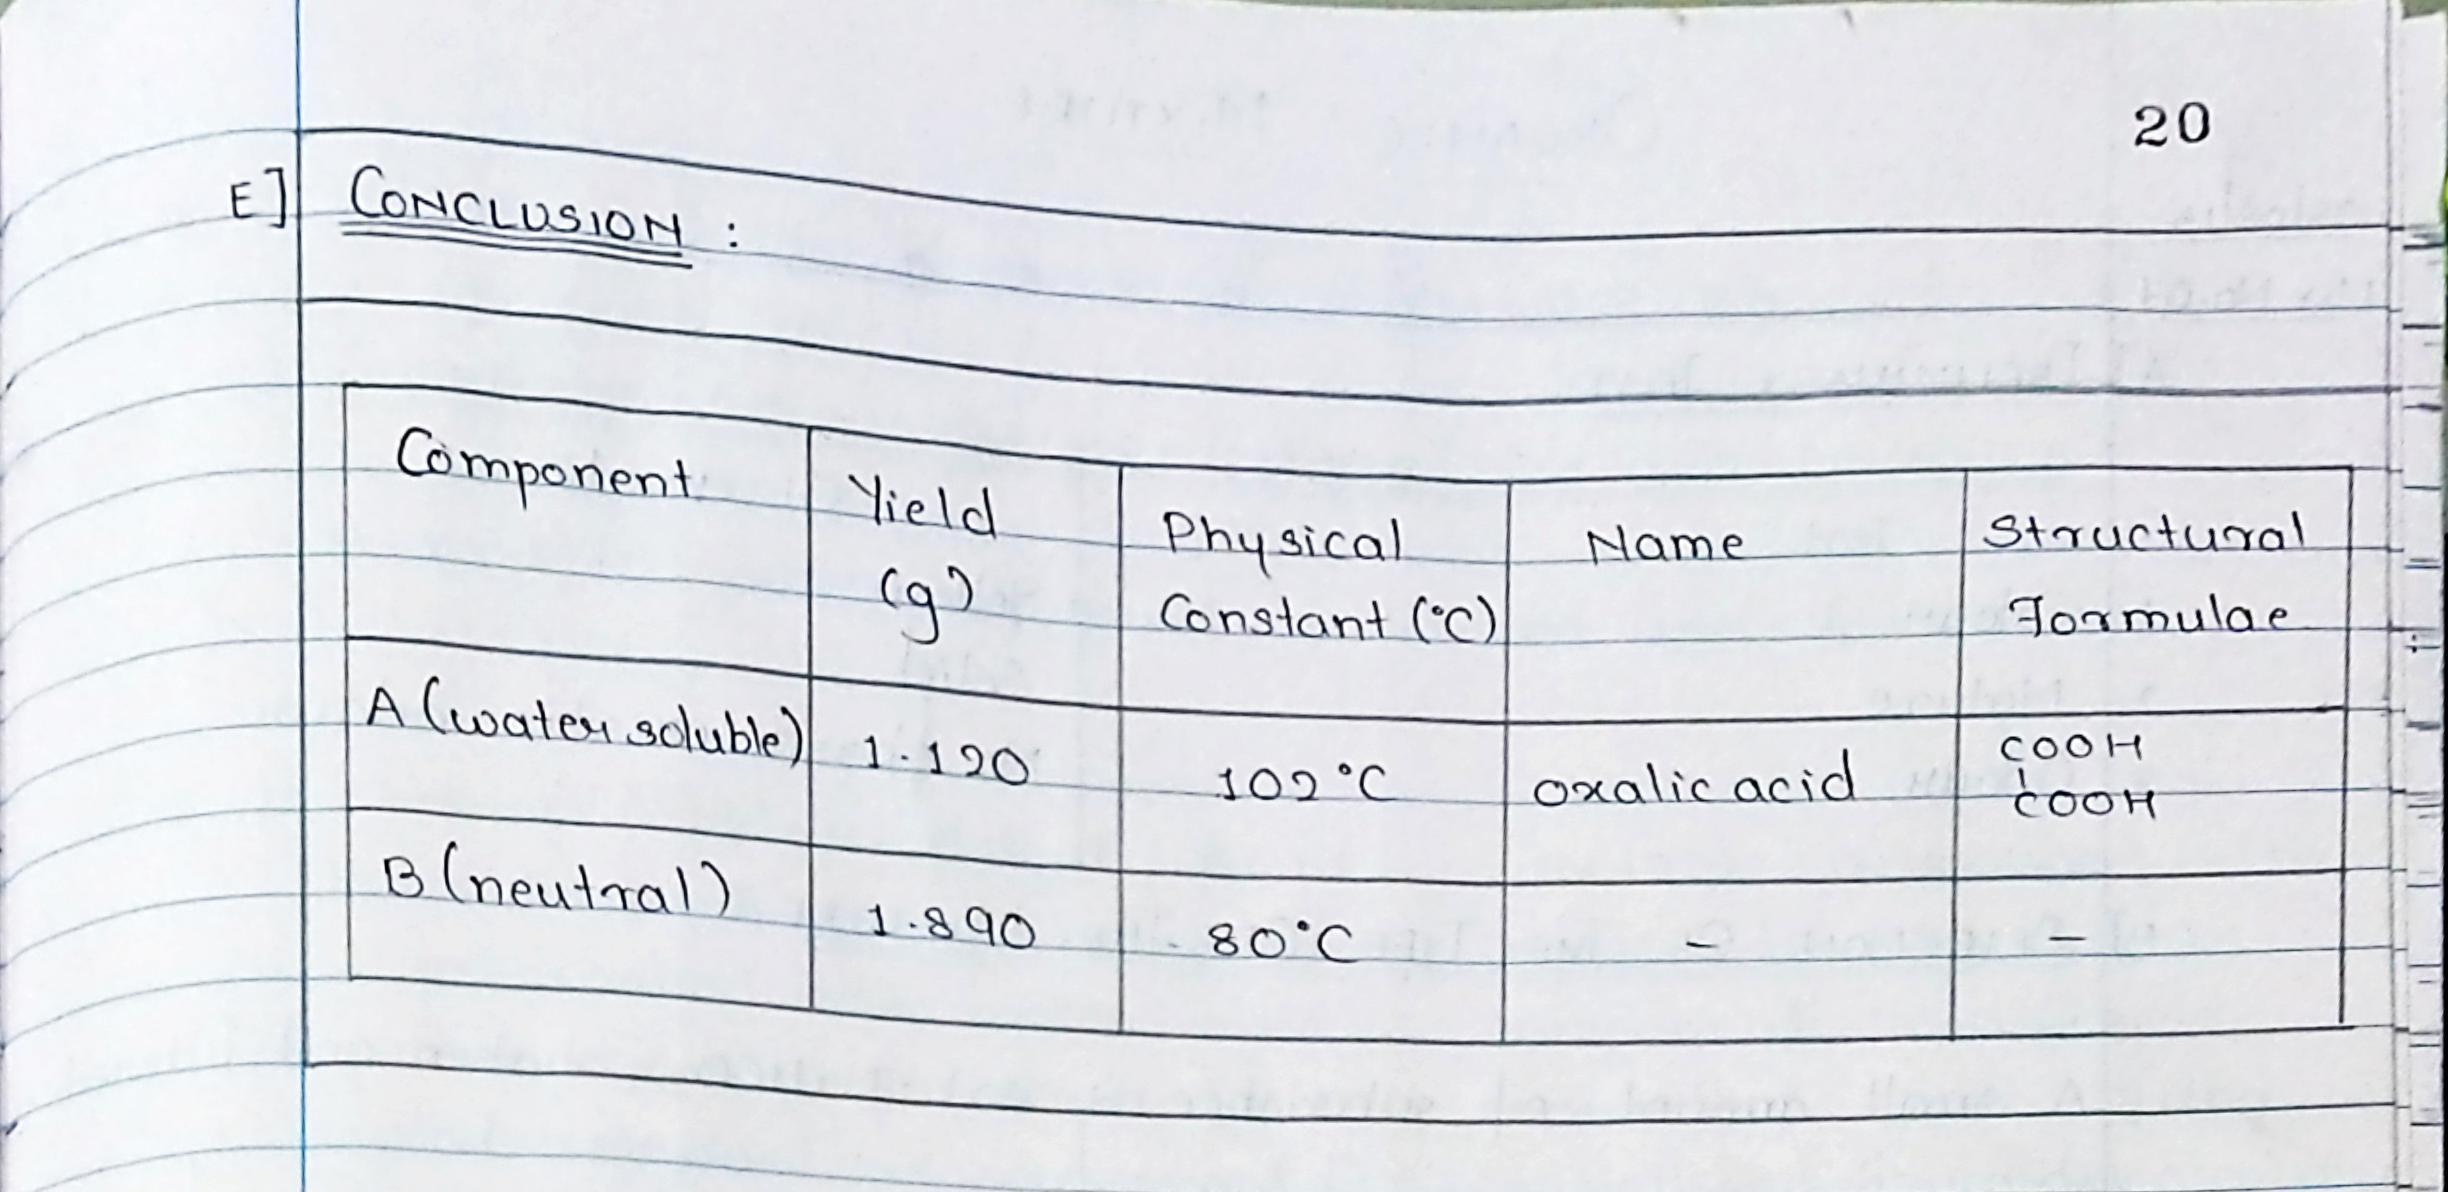 20
E] CONCLUSION :
Component Yield (g) Physical Constant (°C) Name Structural Formulae
A (water soluble) 1.120 102°C oxalic acid COOH
COOH
B (neutral) 1.890 80°C - -